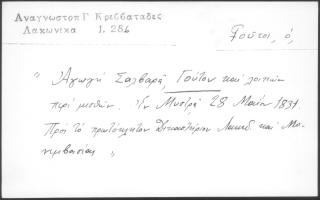 Αναγνωστοπ Γ Κρεββαταδες
Λακωνικα 1. 286
Γοῦτοι, ὁ,
" Ἀγωγὴ Σαλβαρᾶ, Γούτου καὶ λοιπῶν
περὶ μισθῶν. Ἐν Μυστρᾷ 28 Μαΐου 1831.
Πρὸς τὸ πρωτόκλητον Δικαστήριον Λακεδ. καὶ Μο-
νεμβασίας "